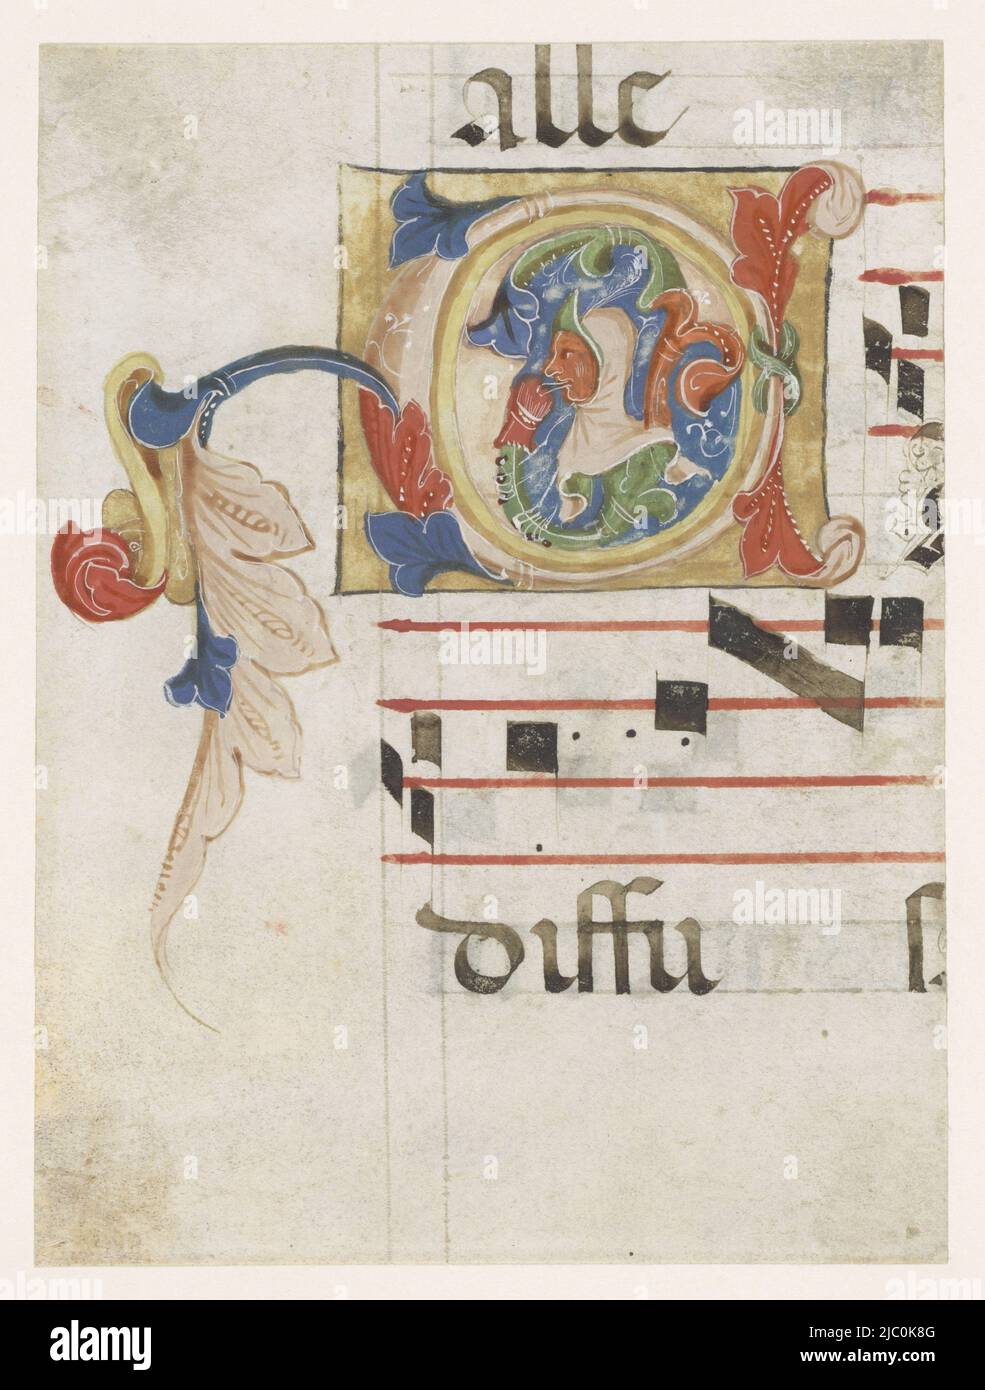 alle
diffu s
alamy
Image ID: 2JC0K8G
www.alamy.com